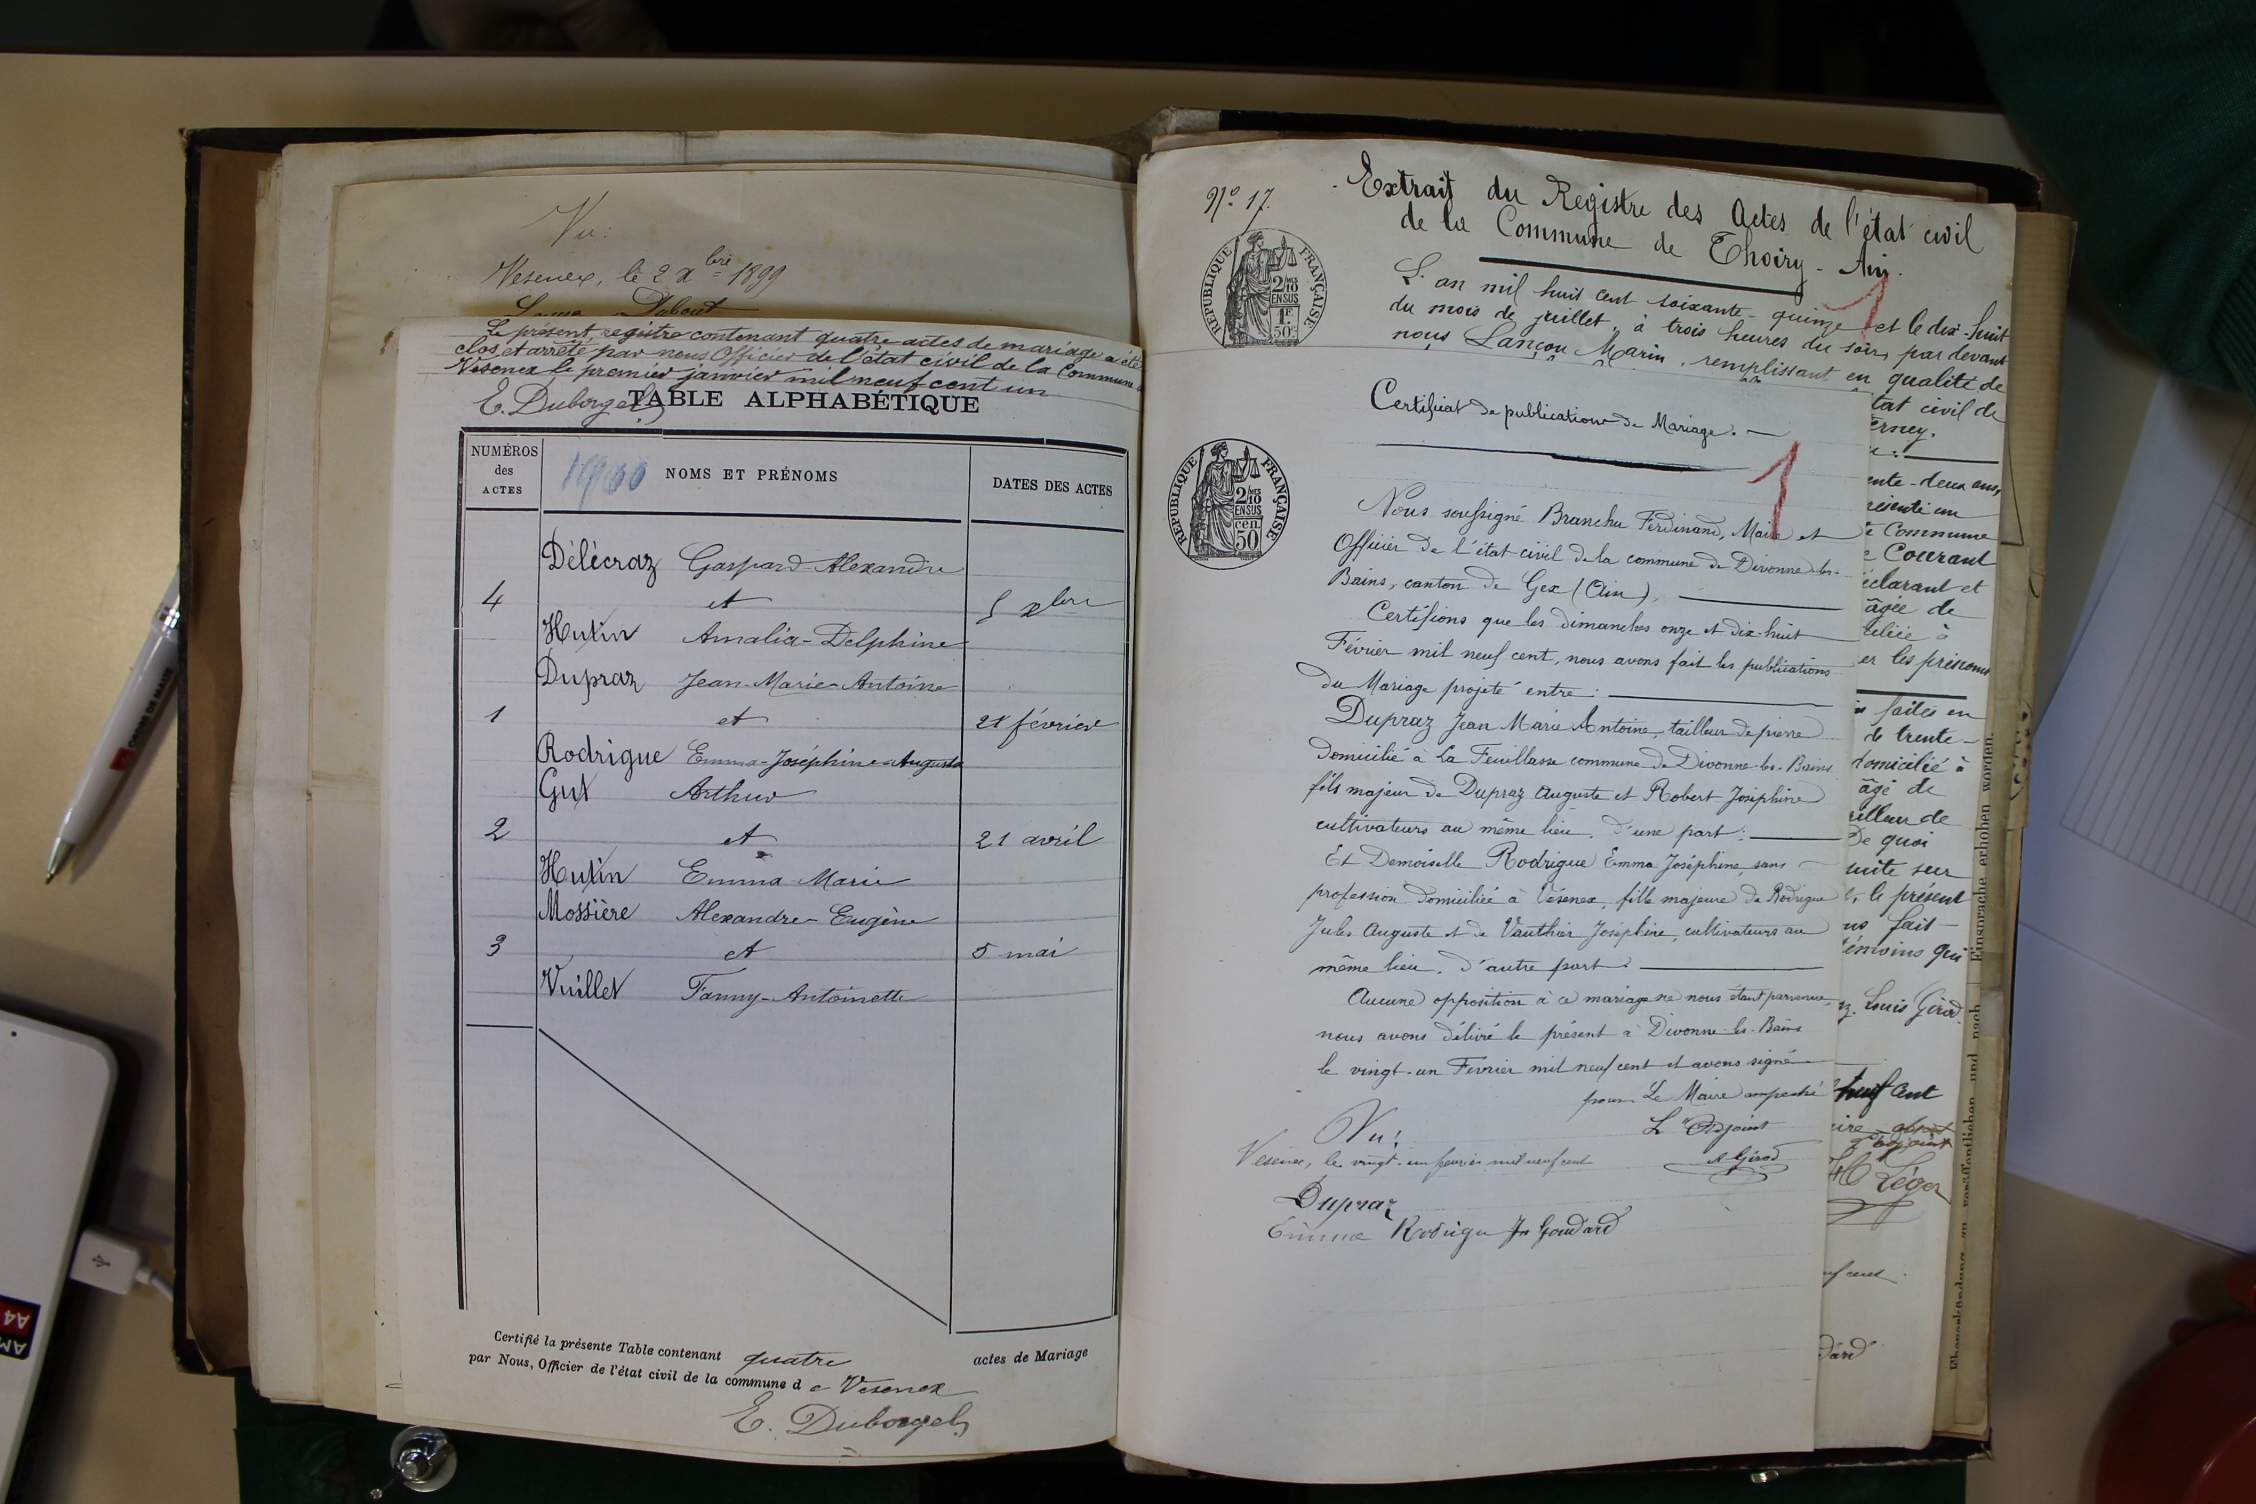 Vu:
Vesenex, le 2 Xbre 1899
Le présent registre contenant quatre actes de mariage a été
clos et arrêté par nous Officier de l'état civil de la Commune
Vesenex le premier janvier mil neuf cent un
E. Duborgel
TABLE ALPHABÉTIQUE
NUMÉROS des ACTES
1900 NOMS ET PRÉNOMS
DATES DES ACTES
Délécraz Gaspard-Alexandre
4 et 5 Xbre
Hutin Amalia-Delphine
Dupraz Jean-Marie-Antoine
1 et 21 février
Rodrigue Emma-Joséphine-Augusta
Gut Arthur
2 et 21 avril
Hutin Emma Marie
Mossière Alexandre-Eugène
3 et 5 mai
Vuillet Fanny-Antoinette
Certifié la présente Table contenant quatre actes de Mariage
par Nous, Officier de l'état civil de la commune d e Vesenex
E. Duborgel
No 17.
Extrait du Registre des Actes de l'état civil
de la Commune de Thoiry - Ain.
RÉPUBLIQUE FRANÇAISE
2/10 MES
EN SUS
1F
50c
1
L'an mil huit cent soixante-quinze et le dix-huit
du mois de juillet, à trois heures du soir, par devant
nous Lançon Marin, remplissant en qualité de
tat civil de
erney.
ente-deux ans,
résenté un
te Commune
e Courant
éclarant et
âgée de
iciliée à
er les prénoms
faites en
de trente-
domicilié à
âgé de
illeur de
De quoi
suite sur
le présent
fait
témoins qui
Louis Girod.
huit cent
Léger
Certificat de publications de Mariage. —
RÉPUBLIQUE FRANÇAISE
2/10 MES
EN SUS
cen
50
1
Nous soussigné Branchu Ferdinand, Maire et
Officier de l'état civil de la commune de Divonne-les-
Bains, canton de Gex (Ain),
Certifions que les dimanches onze et dix-huit
Février mil neuf cent, nous avons fait les publications
du Mariage projeté entre :
Dupraz Jean Marie Antoine, tailleur de pierre
domicilié à La Feuillasse commune de Divonne-les-Bains
fils majeur de Dupraz Auguste et Robert Joséphine
cultivateurs au même lieu. d'une part :
Et Demoiselle Rodrigue Emma Joséphine, sans
profession domiciliée à Vésenex, fille majeure de Rodrigue
Jules Auguste et de Vauthier Joséphine, cultivateurs au
même lieu. d'autre part.
Aucune opposition à ce mariage ne nous étant parvenue,
nous avons délivré le présent à Divonne-les-Bains
le vingt-un Février mil neuf cent et avons signé
pour Le Maire empêché
L'Adjoint
A Girod
Vu :
Vesenex, le vingt-un février mil neuf cent
Dupraz
Emma Rodrigue Jn Goudard
Einsprache erhoben worden.
A4